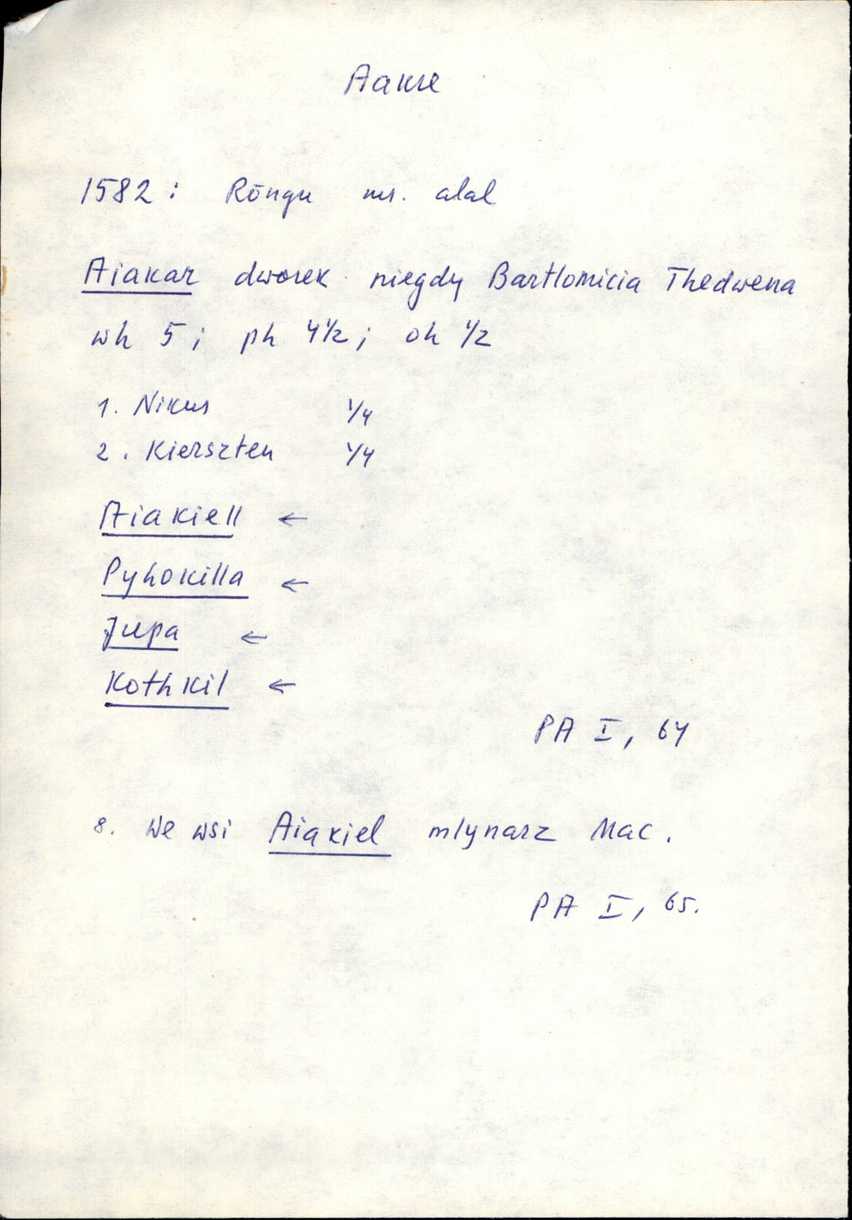 Aakre
1582: Rõngu ms. alal
Aiakar dworek niegdy Bartlomieia Thedwena
wh 5; ph 4 1/2; oh 1/2
1. Nikus 1/4
2. Kierszten 1/4
Aiakiell ←
Pyhokilla ←
Jupa ←
Kothkil ←
PA I, 64
8. We wsi Aiakiel mlynarz Mac.
PA I, 65.